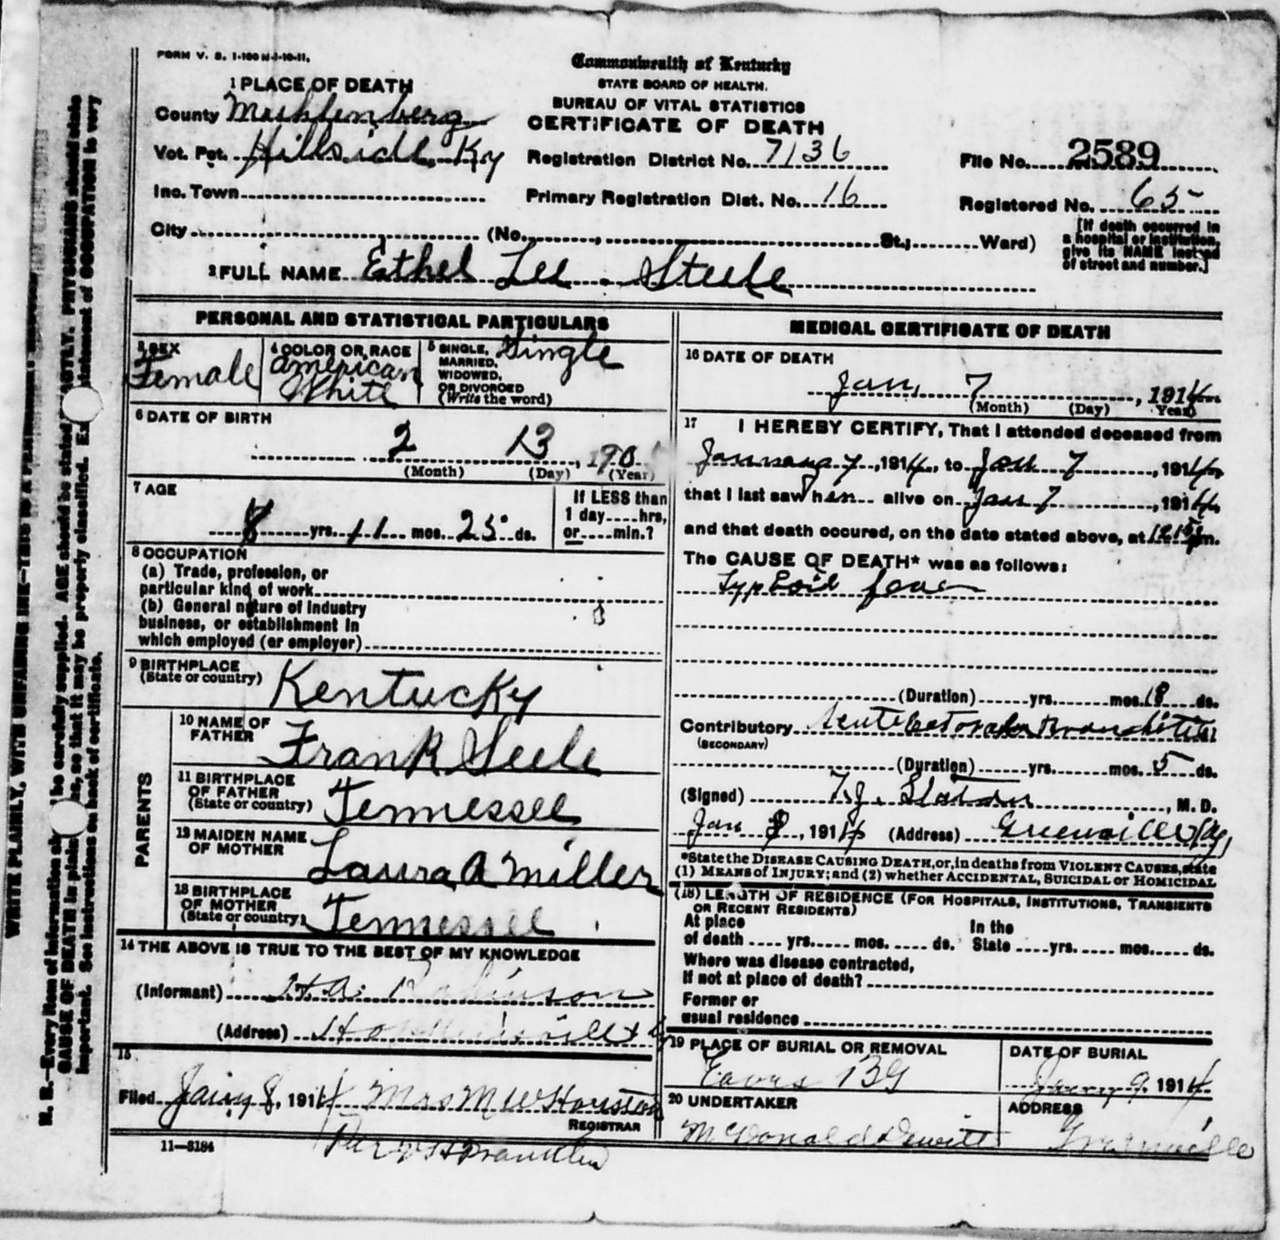 FORM V. S. 1-100 M-1-10-11.
Commonwealth of Kentucky
STATE BOARD OF HEALTH.
BUREAU OF VITAL STATISTICS
CERTIFICATE OF DEATH
1 PLACE OF DEATH
County Muhlenberg
Vot. Pct. Hillside Ky
Inc. Town
City (No. , St.; Ward)
Registration District No. 7136
Primary Registration Dist. No. 16
File No. 2589
Registered No. 65
[If death occurred in
a hospital or institution,
give its NAME instead
of street and number.]
2 FULL NAME Ethel Lee Steele
PERSONAL AND STATISTICAL PARTICULARS
3 SEX
Female
4 COLOR OR RACE
American
White
5 SINGLE,
MARRIED,
WIDOWED,
OR DIVORCED
(Write the word)
Single
6 DATE OF BIRTH
2 13, 190
(Month) (Day) (Year)
7 AGE
8 yrs. 11 mos. 25 ds.
If LESS than
1 day hrs,
or min.?
8 OCCUPATION
(a) Trade, profession, or
particular kind of work
(b) General nature of industry
business, or establishment in
which employed (or employer)
9 BIRTHPLACE
(State or country) Kentucky
PARENTS
10 NAME OF
FATHER Frank Seele
11 BIRTHPLACE
OF FATHER
(State or country) Tennessee
12 MAIDEN NAME
OF MOTHER Laura A Miller
13 BIRTHPLACE
OF MOTHER
(State or country) Tennessee
14 THE ABOVE IS TRUE TO THE BEST OF MY KNOWLEDGE
(Informant) H.A. Robinson
(Address)
15
Filed Jany 8, 1914 Mrs M W Houston
REGISTRAR
Per
11-3184
MEDICAL CERTIFICATE OF DEATH
16 DATE OF DEATH
Jan, 7, 1914
(Month) (Day) Year)
17 I HEREBY CERTIFY, That I attended deceased from
7, 1914, to Jan 7, 1914
that I last saw her alive on Jan 7, 1914,
and that death occured, on the date stated above, at 1215 m.
The CAUSE OF DEATH* was as follows:
Typhoid fever
(Duration) yrs. mos. 18 ds.
Contributory Acute Bronchitis
(SECONDARY)
(Duration) yrs. mos. 5 ds.
(Signed) T.J. Slaton, M. D.
Jan 8, 1914 (Address) Greenville Ky,
*State the DISEASE CAUSING DEATH, or, in deaths from VIOLENT CAUSES, state
(1) MEANS of INJURY; and (2) whether ACCIDENTAL, SUICIDAL or HOMICIDAL
(18) LENGTH OF RESIDENCE (FOR HOSPITALS, INSTITUTIONS, TRANSIENTS
OR RECENT RESIDENTS)
At place
of death yrs. mos. ds.
In the
State yrs. mos. ds.
Where was disease contracted,
if not at place of death?
Former or
usual residence
19 PLACE OF BURIAL OR REMOVAL
Eaves BG
DATE OF BURIAL
Jany 9, 1914.
20 UNDERTAKER
McDonald Dewitt
ADDRESS
Greenville
WRITE PLAINLY, WITH UNFADING INK—THIS IS A PERMANENT RECORD
N. B.—Every item of information should be carefully supplied. AGE should be stated EXACTLY. PHYSICIANS should state
CAUSE OF DEATH in plain terms, so that it may be properly classified. Exact statement of OCCUPATION is very
important. See instructions on back of certificate.